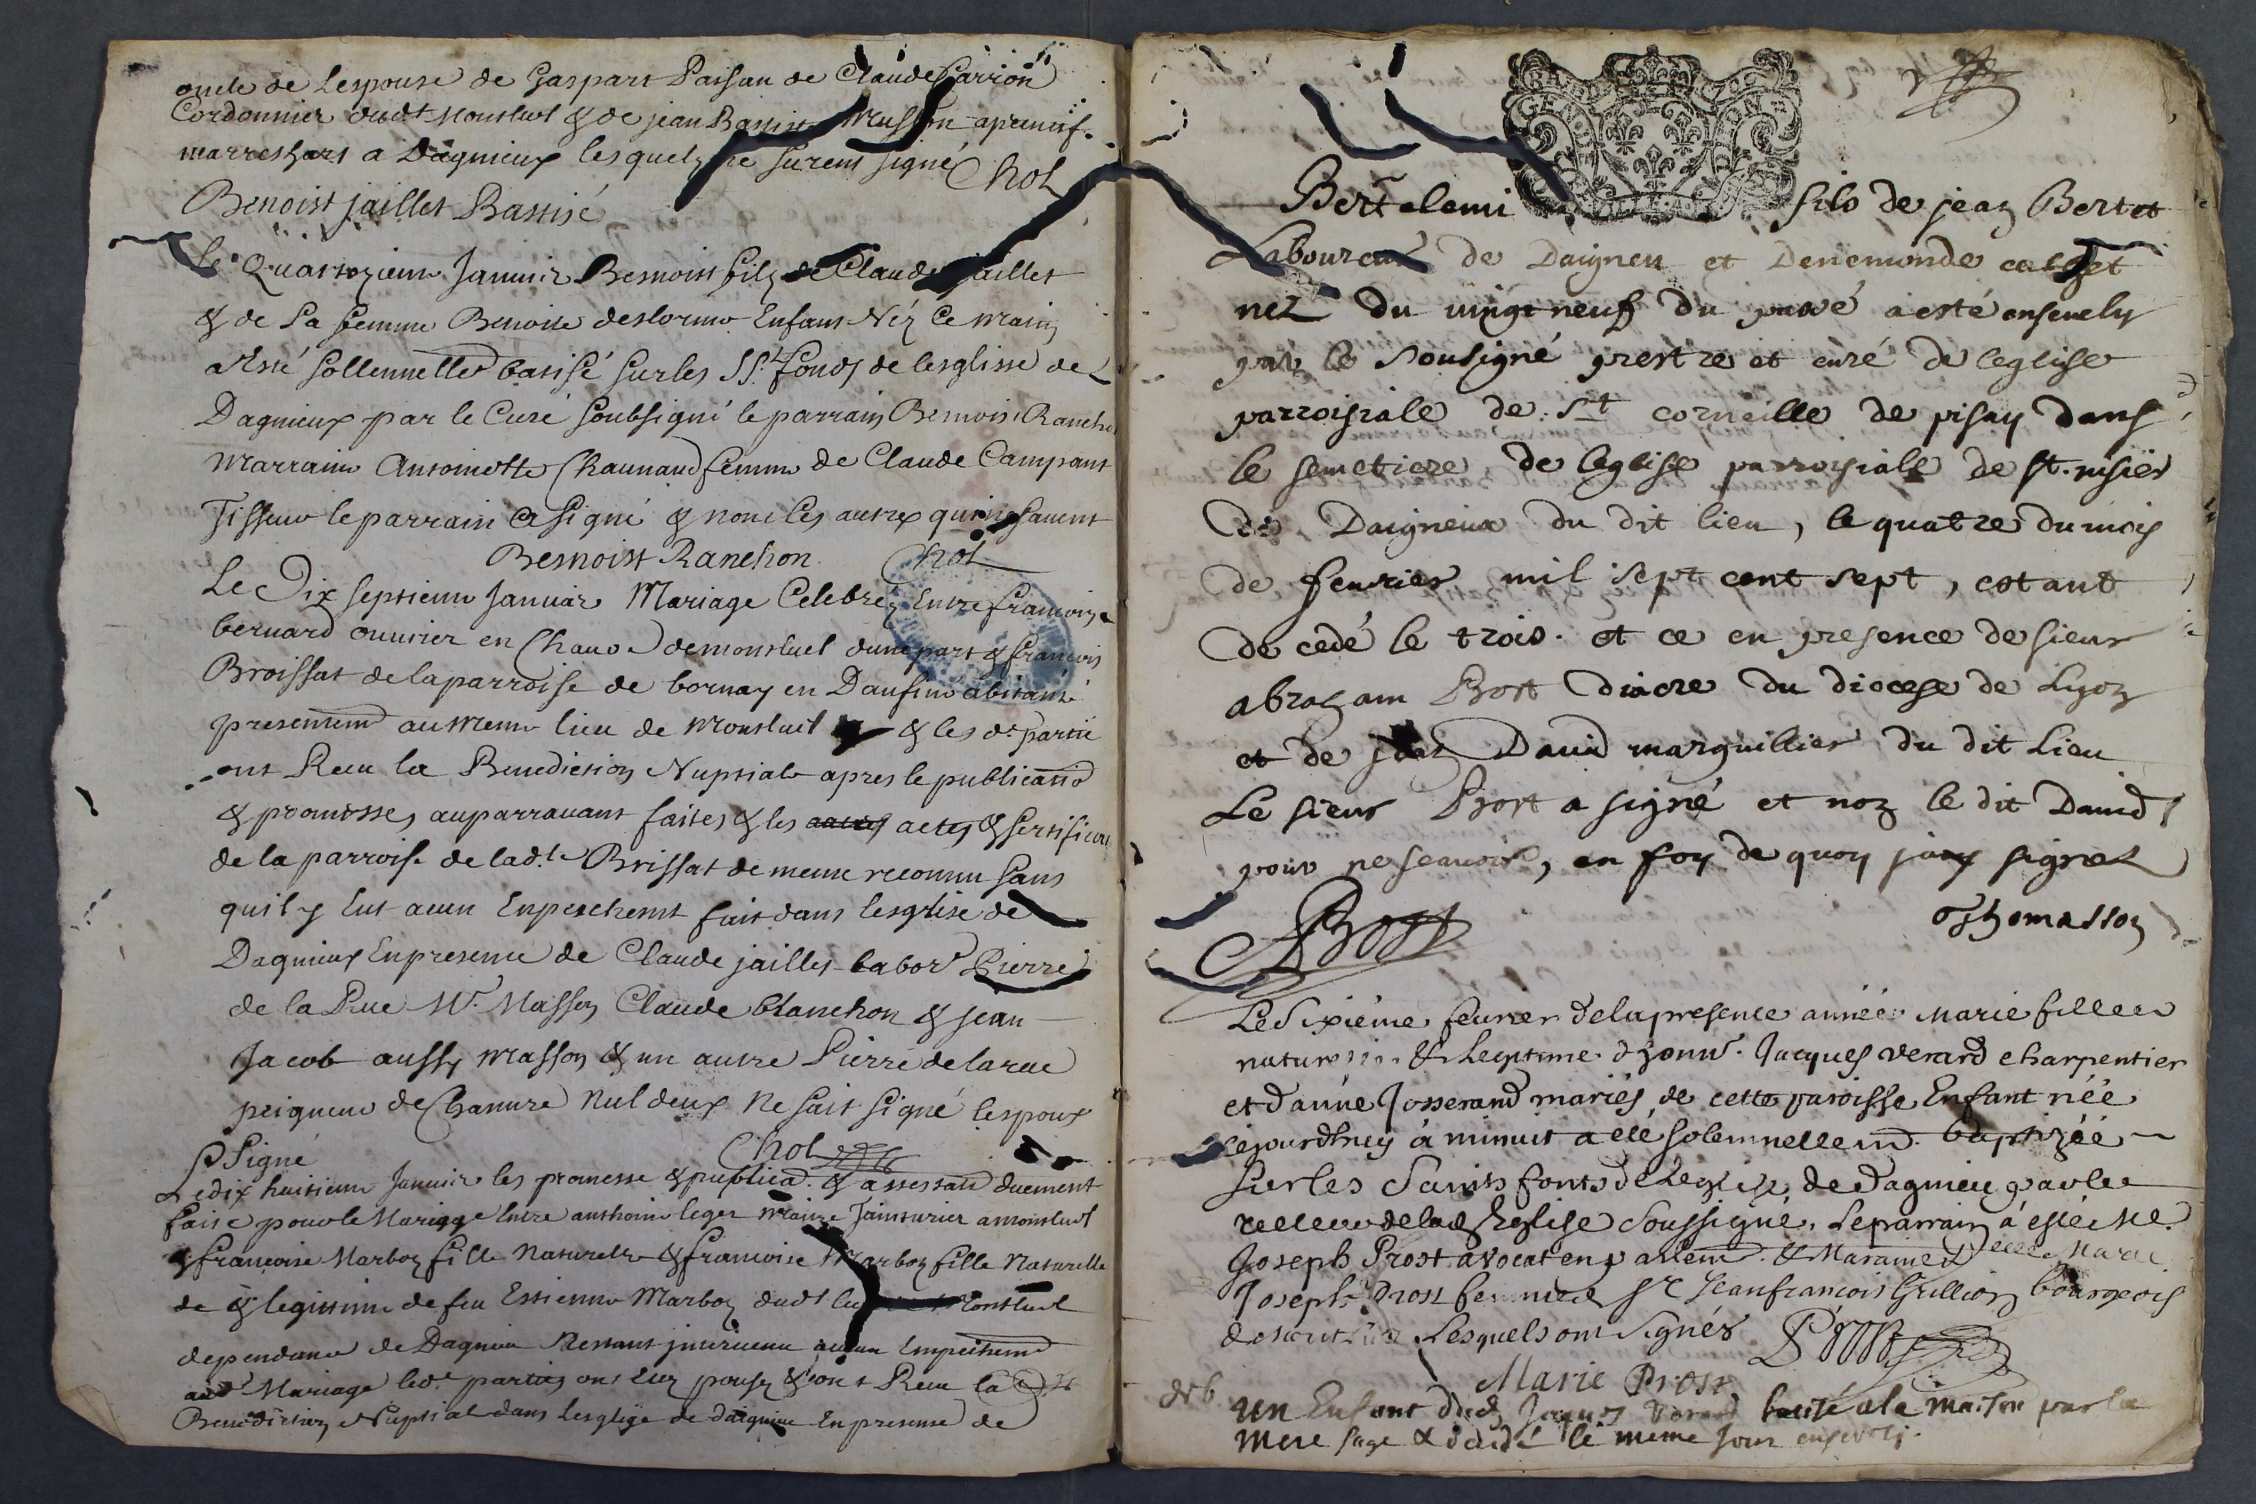 oncle de Lespouse de Gaspart Paissau de Claude Carrion
Cordonnier dudt Monluel & de jean Baptiste Musson aprentif
marreschars a Dagnieux lesquelz ne surent signé Chol
Benoist jaillet Battisé
Le Quatorzieme Januier Besnoist filz de Claude jaillet
& de Sa femme Benoite deslorme Enfant Néz Ce matin
a Esté sollennellet batisé sur les SSt fonds de lesglisse de
Dagnieux par le Curé soubsigné le parrain Bennoist Ranchon
Marraine Antoinette Chaunaud femme de Claude Campant
Tisseur le parrain a signé & non les autres qui ne sauent
Besnoist Ranchon Chol
Le Dix septieme Januier Mariage Celebréz Entre francoize
bernard ouurier en Chanvre de monluel dune part & francois
Broissat de la parroise de bornay en Daufiné abitante
presentemt au Meme lieu de Monluel & les dt partie
ont Receu la Benediction Nuptiale apres le publicatio
& promesses auparrauant faites & les autres actes & sertificat
de la parroise de ladte Brissat de meme reconnu sans
quil y Eut aucun Enpeschemt fait dans lesglise de
Dagnieux En presence de Claude jaillet labor Pierre
de la Rue Mr Masson Claude blanchon & jean
Jacob aussy masson & un autre Pierre de la rue
peigneur de Chanure Nul deux ne sait signé lespoux
a Signé Chol
Le dix huitieme Januier les promesse & publica & duement
faite pour le Mariage Entre anthoine leger Maitre Tainturier a monluel
& francoise Marboz fille Naturelle & francoise Marboz fille Naturelle
de & legittime de feu Estienne Marboz dudt Monluel
dependance de Dagnieu Nestant interuenu aucun Empechemt
audt Mariage led parties ont Receu la
Benediction Nuptiale dans lesglise de daignieu En presence de
Bertelemi fils de jean Bertet
Laboureur de Daigneu et Denemonde
nez du vingt neuf du passé a esté enseuely
par le sousigné prestre et curé de leglise
parroisiale de St corneille de pisay dans
le semetiere de leglise parroisiale de st. nisier
de Daigneux du dit lieu, le quatre du mois
de feurier mil sept cent sept, estant
decedé le trois. et ce en presence de sieur
abraham Prost Diacre du diocese de Lyon
et de jean Dauid marguillier du dit Lieu
Le sieur Prost a signé et non le dit Dauid
pour ne scauoir, en foy de quoy jay signez
Thomasson
AProst
Le Sixiéme feurier de la presente année Marie fille
naturelle & Legitime dhonne Jacques verard charpentier
et danne Josserand mariés de cette paroisse Enfant née
cejourdhuy à minuit a été solemnellemt baptizée
sur les Saints fonts de Leglise de Dagnieu par le
de lad Eglise Soussigné. Le parrain à esté Me.
Joseph Prost avocat en parlemt. & Maraine Delle Marie
Joseph Prost femme de Sr Jean francois Grillion bourgeois
Lesquels ont Signés Prost
Marie Prost
Un Enfant dud Jaques Verard batisé a la maison par la
mere sage & decedé le meme jour enseveli